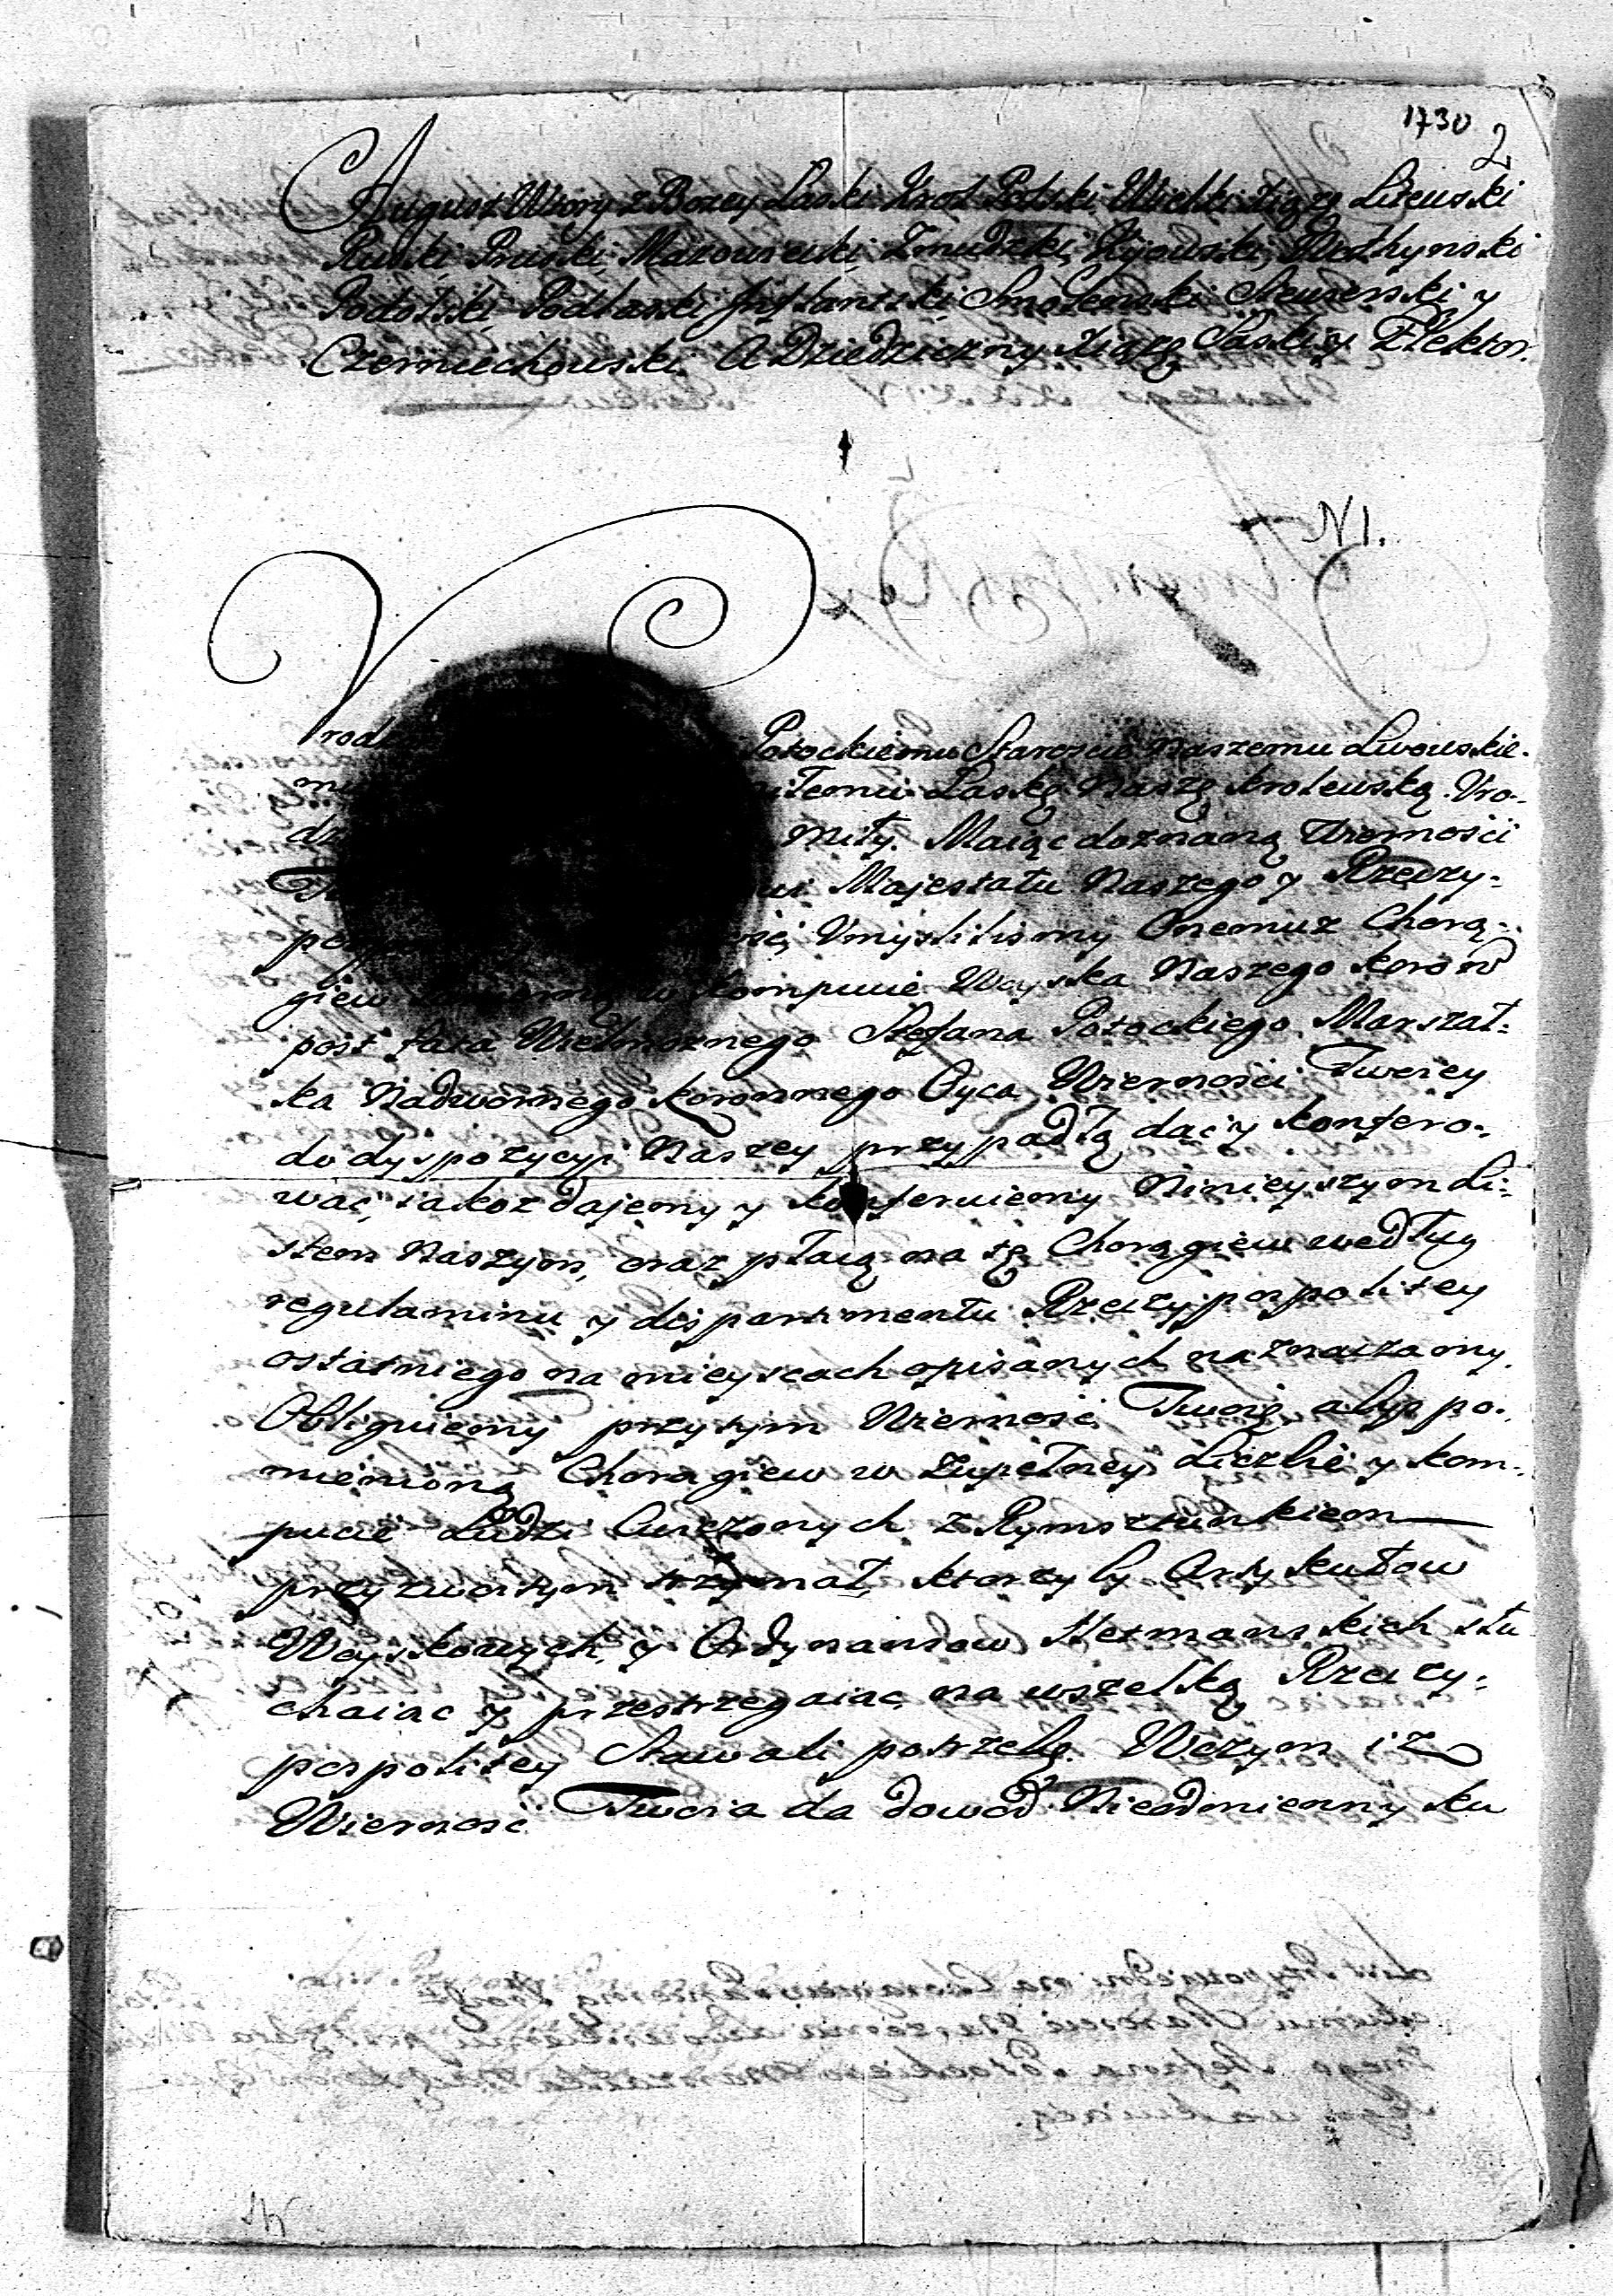 1730
2
August Wtory z Bozey Łaski Krol Polski, Wielki Xiążę Litewski
Ruski, Pruski, Mazowiecki, Zmudzki, Kijowski, Wołhynski
Podolski, Podlaski Inflantski, Smolenski Siewierski, y
Czerniechowski. A Dziedziczny Xiążę Saski y Elektor.
N 1.
Potockiemu Staroscie Naszemu Lwowskie-
miłemu Łaskę Naszę krolewską. Vro-
miły. Maiąc doznaną Wiernosci
Majestatu Naszego y Rzeczy-
Vmyslilismy Onemuz Chorą-
giew w kompucie Woyska Naszego koron
post fata Wielmoznego Stefana Potockiego Marszał-
ka Nadwornego koronnego Oyca Wiernosci Twoiey
do dyspozycyi Naszey przypadłą dac y konfero-
wac, iakoz dajemy y konferuiemy Ninieyszym Li-
stem Naszym, oraz płacą na tę Chorągiew według
regulaminu y dispartimentu Rzeczypospolitey
ostatniego na mieyscach opisanych naznaczamy.
Obliguiemy przytym Wiernosc Twoię, abys po-
mienioną Chorągiew w zupełney Liczbie y kom-
pucie Ludzi Cwiczonych z Rymsztunkiem
przyzwoitym trzymał, ktorzy by Artykułow
Woyskowych, y Ordynansow Hetmanskich słu
chaiac y przestrzegaiac na wszelką Rzeczy-
pospolitey Stawali potrzebę. Wczym iz
Wiernosc Twoia da dowod Nieodmienny ku